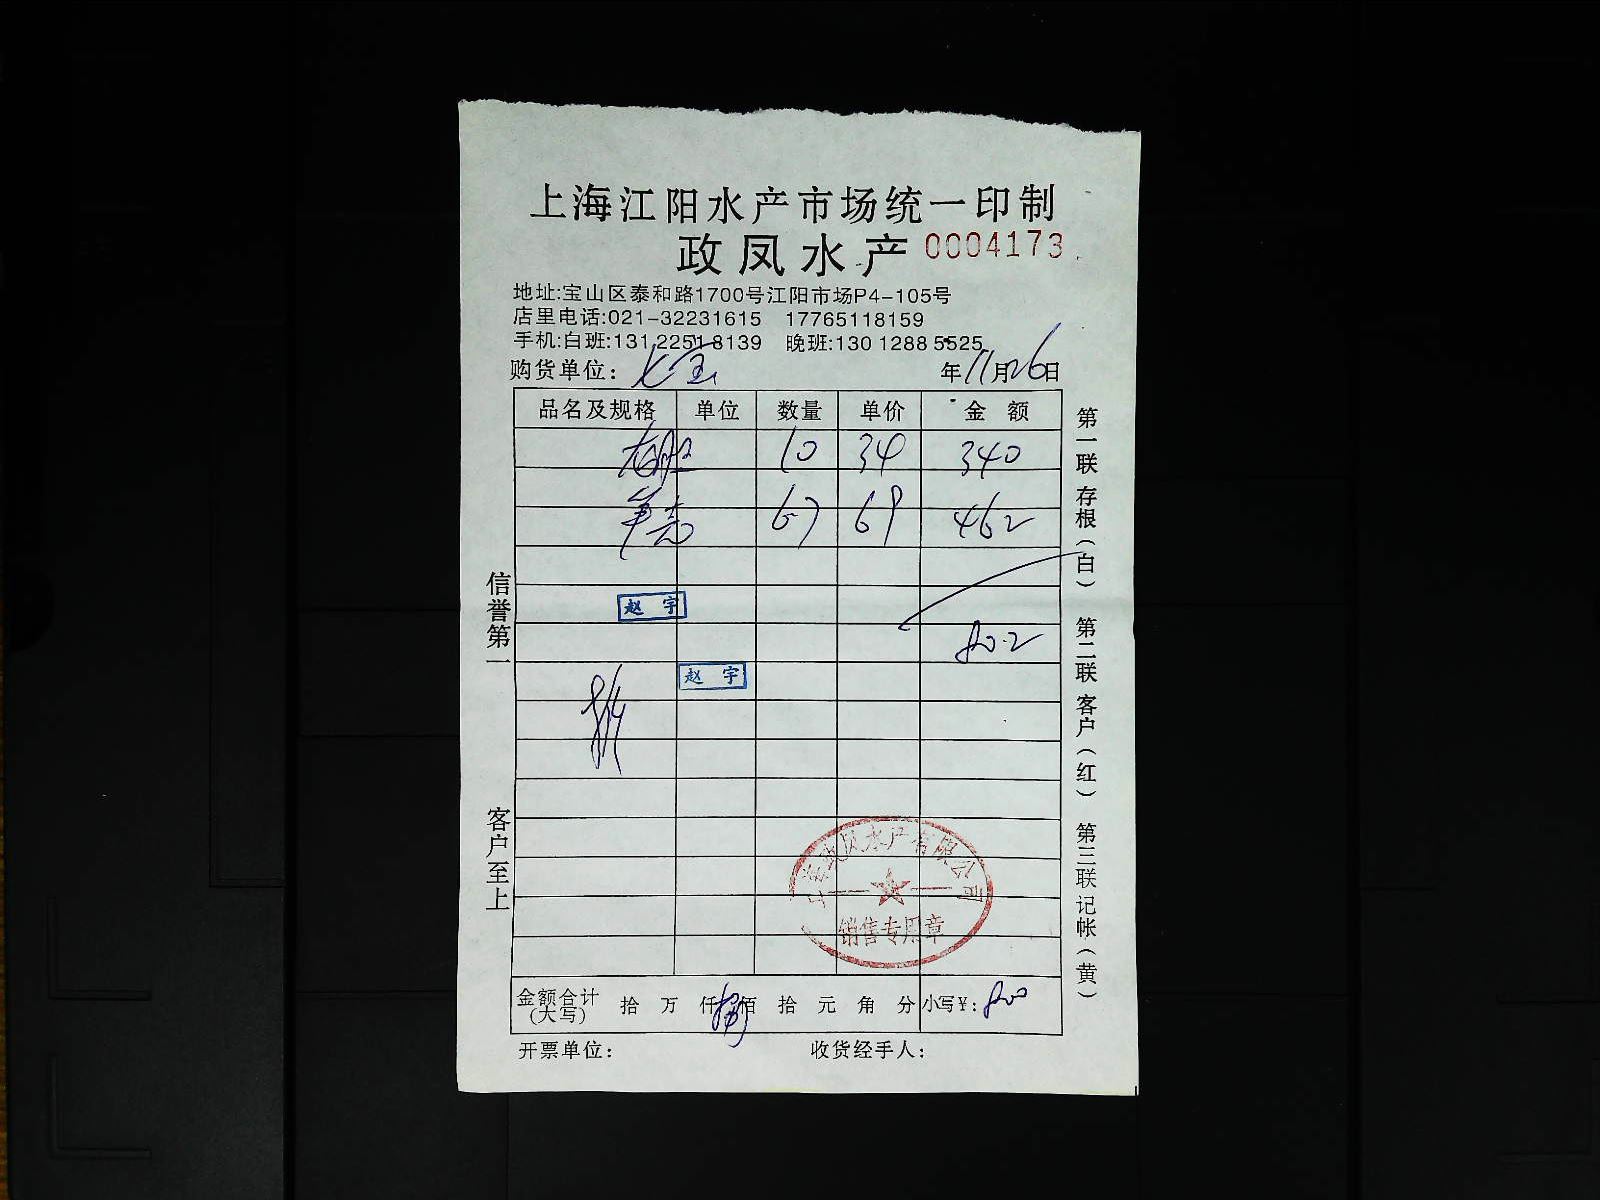 上海江阳水产市场统一印制
政凤水产 0004173
地址:宝山区泰和路1700号江阳市场P4-105号
店里电话:021-32231615 17765118159
手机:白班:131 2251 8139 晚班:130 1288 5525
购货单位: 七宝 年11月26日
品名及规格 单位 数量 单价 金额
10 34 340
67 69 462
赵宇
802
赵宇
上海政凤水产有限公司
销售专用章
金额合计(大写) 拾 万 仟 捌佰 拾 元 角 分 小写¥: 800
开票单位: 收货经手人:
信誉第一 客户至上
第一联存根(白) 第二联客户(红) 第三联记帐(黄)